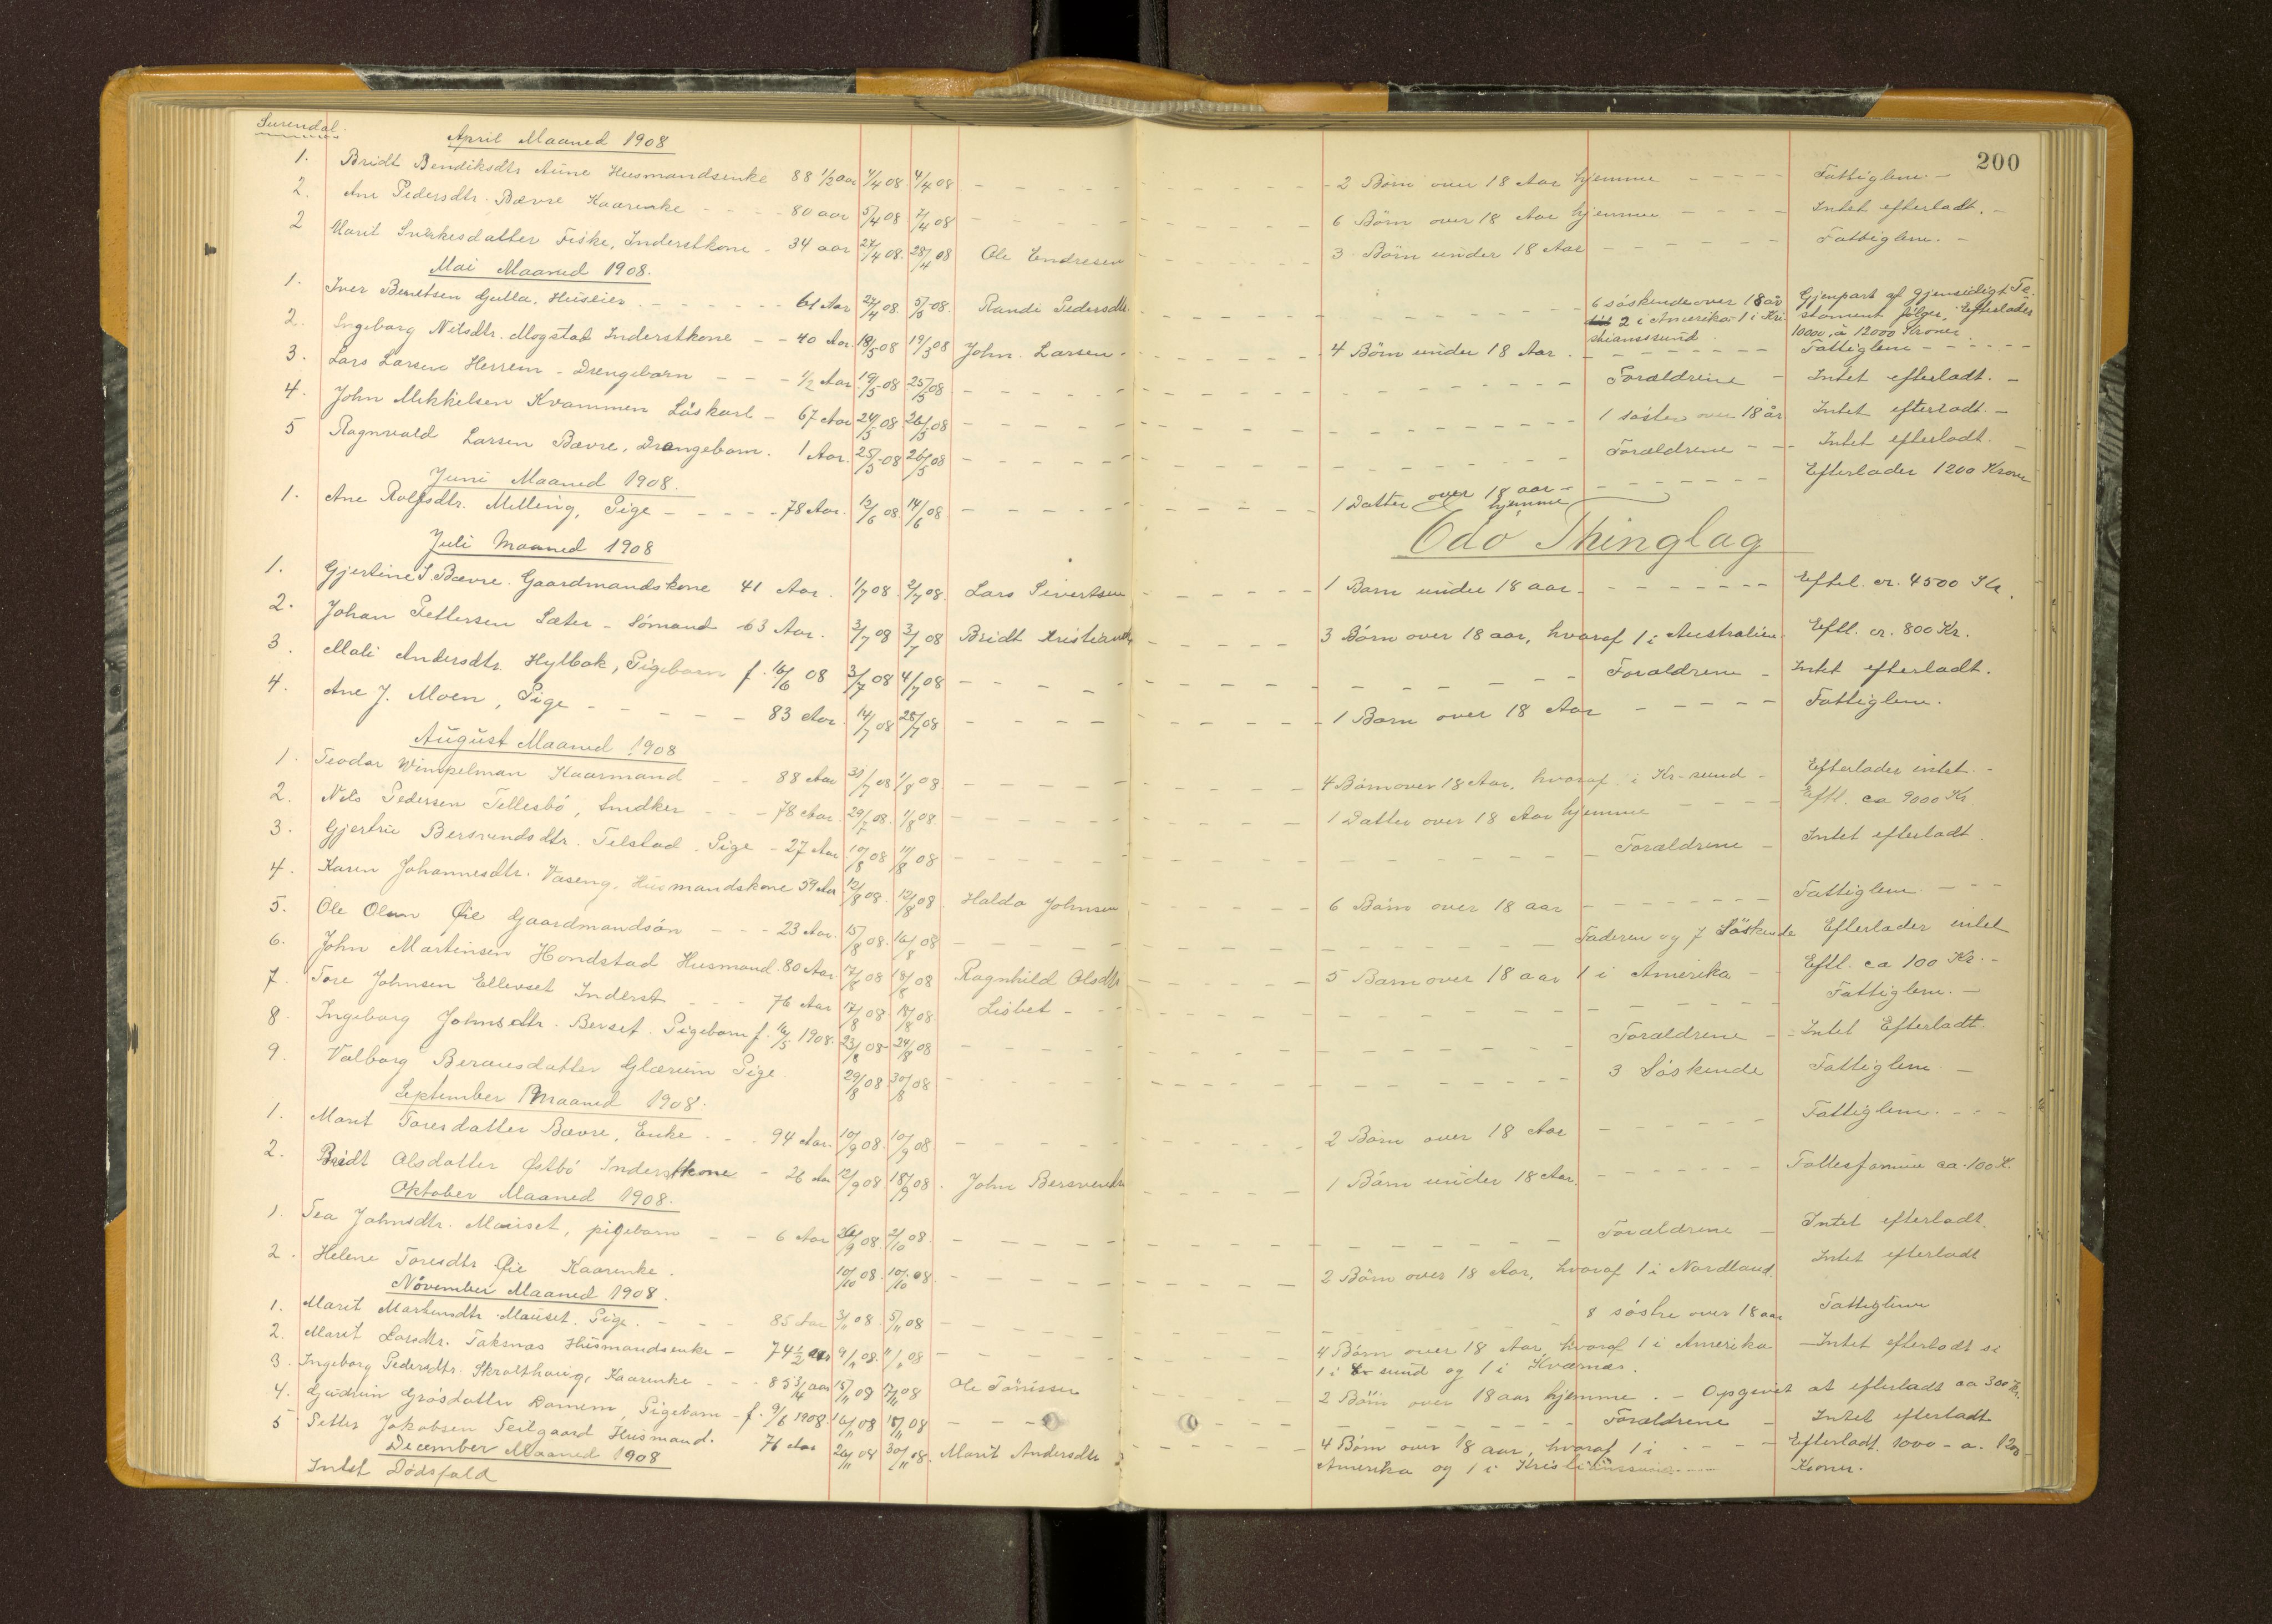 Surendal.
200
April Maaned 1908
1. Bridt Bendiksdtr Aune Husmandsenke 88 1/2 aar 4/4 08 4/4 08 - 2 Börn over 18 Aar hjemme - Fattiglem. -
2. Ane Pedersdtr. Bævre Kaarenke - 80 aar 5/4 08 7/4 08 - 6 Börn over 18 Aar hjemme - Intet efterladt. -
2 Marit Sverkesdatter Fiske, Inderstkone - 34 aar 24/4 08. 28/4 08 Ole Endresen - 3 Börn under 18 Aar - Fattiglem. -
Mai Maaned 1908.
1. Iver Berntsen Gulla. Huseier - 61 Aar 24/4 08. 5/5 08. Randi Pedersdtr - 6 söskende over 18 år 2 i Amerika 1 i Kristianssund. Gjenpart af gjensidigt Testament fölger. Efterlader 10000 à 12000 Kroner
2. Ingeborg Nilsdtr. Mogstad Inderstkone - 40 Aar. 18/5 08 19/5 08 John Larsen - 4 Börn under 18 Aar. - Fattiglem -
3. Lars Larsen Herrem - Drengebarn - 1/2 Aar. 19/5 08 25/5 08 - Forældrene - Intet efterladt. -
4. John Mikkelsen Kvammen Löskarl - 67 Aar 24/5 08 26/5 08 - 1 söster over 18 år Intet efterladt. -
5 Ragnvald Larsen Bævre, Drengebarn. 1 Aar. 25/5 08 26/5 08 - Forældrene - Intet efterladt. -
Juni Maaned 1908.
1. Ane Rolfsdtr. Melling, Pige - 78 Aar. 12/6 08. 14/6 08 - 1 Datter over 18 aar hjemme - Efterlader 1200 Krone
Edö Thinglag
Juli Maaned 1908
1. Gjertine S. Bævre. Gaardmandskone 41 Aar. 1/7 08. 2/7 08. Lars Sivertsen - 1 Barn under 18 aar - Eftel. cr. 4500 Kr.
2. Johan Pettersen Sæter - Sömand 63 Aar. 3/7 08 3/7 08 Bridt - 3 Börn over 18 aar, hvoraf 1 i Australien. Eftl. cr. 800 Kr.
3. Mali Andersdtr. Hylbak, Pigebarn f. 16/6 08 3/7 08 4/7 08 - Forældrene - Intet efterladt.
4. Ane J. Moen, Pige - 83 Aar. 14/7 08 28/7 08 - 1 Barn over 18 Aar - Fattiglem.
August Maaned 1908
1. Teodor Wimpelman Kaarmand - 88 Aar 31/7 08 1/8 08. - 4 Börn over 18 Aar, hvoraf i Kr-sund - Efterlader intet. -
2. Nils Pedersen Tellesbö, Smdker - 78 Aar. 29/7 08. 1/8 08. - 1 Datter over 18 Aar hjemme - Eftl. ca 9000 Kr.
3. Gjertrü Bersvendsdtr. Telstad. Pige - 27 Aar. 10/8 08 11/8 08 - Forældrene - Intet efterladt.
4. Karen Johannesdtr. Vaseng, Husmandskone 59 Aar. 12/8 08. 12/8 08. Haldo Johnsen - 6 Börn over 18 aar - Fattiglem. -
5. Ole Olsen Öie Gaardmandsön - 23 Aar. 15/8 08. 16/8 08 - Faderen og 7 Söskende Efterlader intet
6. John Martinsen Hondstad Husmand. 80 Aar 17/8 08 18/8 08 Ragnhild Olsdtr - 5 Barn over 18 aar 1 i Amerika - Eftl. ca 100 Kr. -
7. Tore Johnsen Ellevset Inderst - 76 Aar 17/8 08. 18/8 08. Lisbet - Fattiglem. -
8. Ingeborg Johnsdtr. Berset. Pigebarn f. 16/5 1908. 23/8 08 24/8 08 - Forældrene - Intet Efterladt.
9. Valborg Berausdatter Glærum Pige 29/8 08 30/8 08 - 3 Söskende Fattiglem -
September Maaned 1908.
1. Marit Toresdatter Bævre, Enke. - 94 Aar. 10/9 08. 10/9 08. - 2 Börn over 18 Aar - Fattiglem. -
2. Bridt Olsdatter Östbö Inderstkone - 26 Aar 12/9 08 18/9 08. John - 1 Barn under 18 Aar. - Fællesformue ca. 100 K.
Oktober Maaned 1908.
1. Tea Johnsdtr. Mauset, pigebarn - 6 Aar 30/9 08. 2/10 08. - Forældrene - Intet efterladt.
2. Helene Toresdtr Öie Kaarenke. 10/10 08. 10/10 08. - 2 Börn over 18 Aar, hvoraf 1 i Nordland. Intet efterladt
November Maaned 1908.
1. Marit Martinsdtr. Mauset. Pige. - 85 Aar 3/11 08. 5/11 08 - 8 söstre over 18 aar Fattiglem
2. Marit Larsdtr. Taksnæs Husmandsenke - 74 1/2 aar 9/11 08. 11/11 08 - 4 Börn over 18 Aar, hvoraf 1 i Amerika 1 i Kr sund og 1 i Kvernæs. - Intet efterladt
3. Ingeborg Pedersdtr. Skralthaug, Kaarenke - 85 3/4 aar 15/11 08 17/11 08 Ole Tönissen 2 Börn over 18 aar hjemme. - Opgivet at efterlade ca 300 Kr.
4. Gudrun Gråsdatter Dønnem, Pigebarn - f. 9/6 1908. 16/11 08 18/11 08 - Forældrene - Intet efterladt
5 Petter Jakobsen Teitgaard Husmand. 76 Aar 26/11 08 30/11 08. Marit Andersdtr - 4 Börn over 18 aar, hvoraf 1 i Amerika og 1 i Kristianssund - Efterladt. 1000 - a. 1200 - Kroner.
December Maaned 1908
Intet Dödsfald